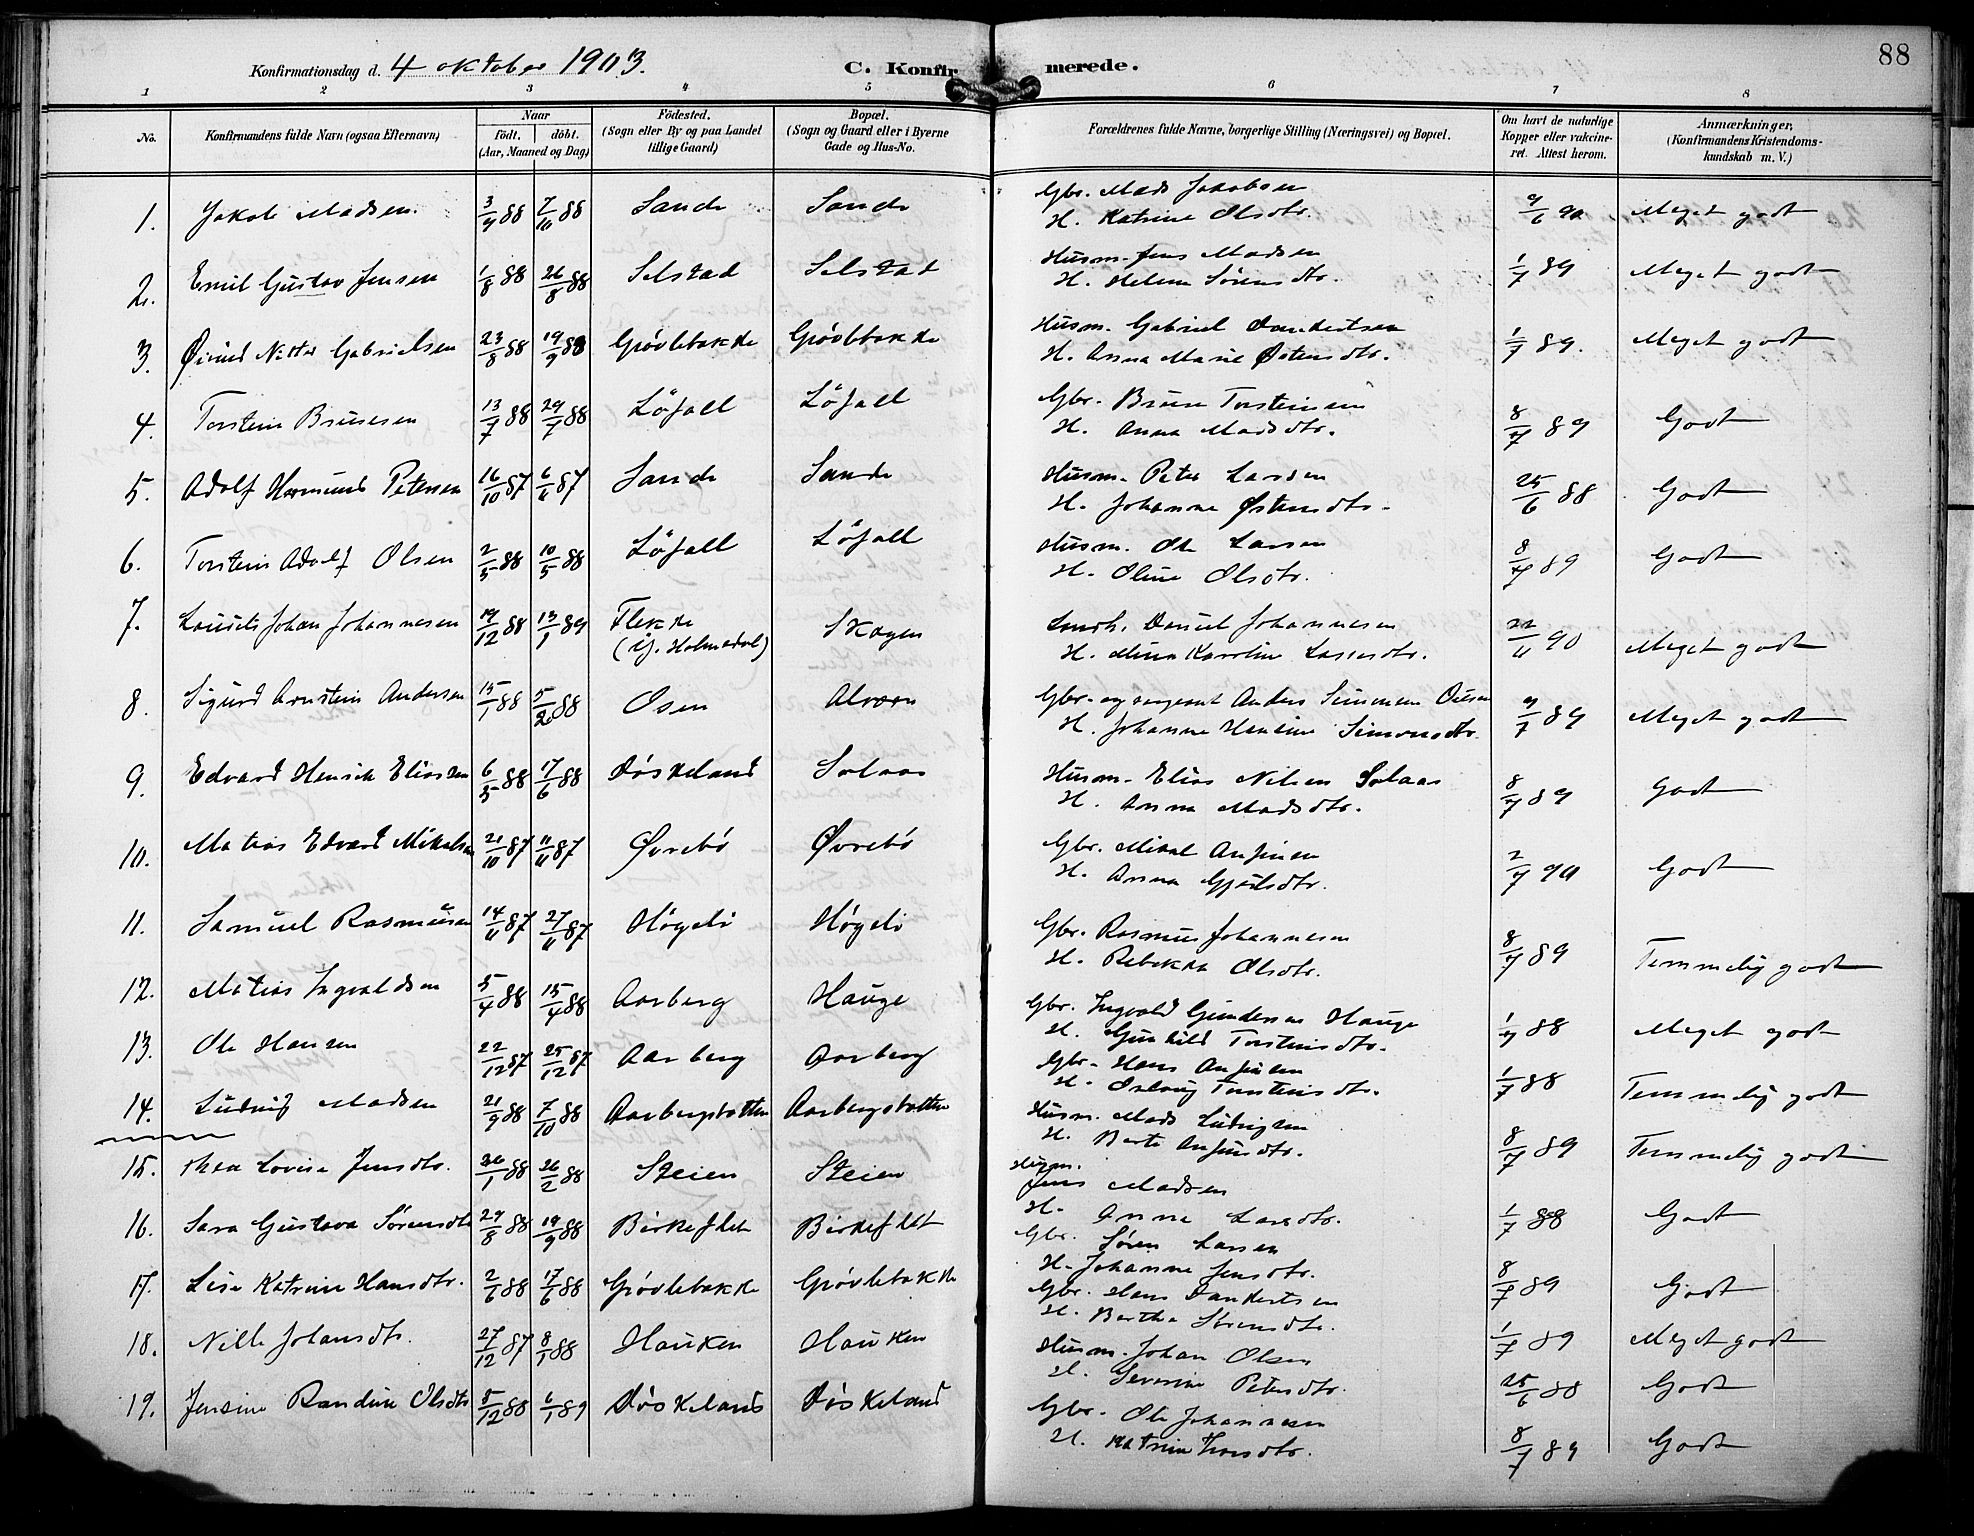 88
Konfirmationsdag d. 4 oktober 1903.
C. Konfirmerede.
1 2 3 4 5 6 7 8
No.
Konfirmandens fulde Navn (ogsaa Efternavn)
Naar
födt. döbt.
(Aar, Maaned og Dag)
Födested.
(Sogn eller By og paa Landet
tillige Gaard)
Bopæl.
(Sogn og Gaard eller i Byerne
Gade og Hus-No.
Forældrenes fulde Navne, borgerlige Stilling (Næringsvei) og Bopæl.
Om havt de naturlige
Kopper eller vakcine-
ret. Attest herom.
Anmærkninger.
(Konfirmandens Kristendoms-
kundskab m. V.)
1. Jakob Madsen. 3/9 88 7/10 88 Sande Sande Gbr. Mads Jakobsen
H. Katrine Olsdtr. 9/6 90 Meget godt
2. Emil Gustav Jensen 1/8 88 26/8 88 Selstad Selstad Husm. Jens Madsen
H. Helene Sørensdtr. 1/7 89 Meget godt
3. Øivind Nitter Gabrielsen 23/8 88 19/9 88 Gjövlebakke Gjövlebakke Husm. Gabriel Dankertsen
H. Anna Marie Østensdtr. 1/7 89. Meget godt
4. Torstein Brunesen 13/7 88 29/7 88 Löfall Löfall Gbr. Brune Torsteinsen
H. Anna Madsdtr. 8/7 89 Godt
5. Adolf Hermund Petersen 16/10 87 6/11 87 Sande Sande Husm. Peter Larsen
H. Johanne Østensdtr. 25/6 88 Godt
6. Torstein Adolf Olsen 2/5 88 10/5 88 Löfall Löfall Husm. Ole Larsen
H. Oline Olsdtr. 8/7 89 Godt
7. Lauritz Johan Johannesen 19/12 88 13/1 89 Flekke
(Y. Holmedal) Skogen Daniel Johannesen
H. Mina Karoline Lassesdtr. 22/11 90 Meget godt
8. Sigurd Arnstein Andersen 15/1 88 5/2 88 Osen Alvøren Gbr. og sergeant Anders Simonsen Osen
H. Johanne Hansine Simonsdtr. 9/7 89 Meget godt
9. Edvard Henrik Eliassen 6/5 88 17/6 88 Döskeland Solaas Husm. Elias Nilsen Solaas
H. Anna Madsdtr. 8/7 89 Godt
10. Matias Edvard Mikalsen 21/10 87 11/11 87 Øvrebö Øvrebö Gbr. Mikal Anfinsen
H. Anna Gjertsdtr. 2/7 90 Godt
11. Samuel Rasmusen 14/11 87 27/11 87 Högeli Högeli Gbr. Rasmus Johannesen
H. Rebekka Olsdtr. 8/7 89 Temmelig godt
12. Matias Ingvaldsen 5/4 88 15/4 88 Aarberg Hauge Gbr. Ingvald Gundersen Hauge
H. Gunhild Torsteinsdtr. 1/7 88 Meget godt
13. Ole Hansen 22/12 87 25/12 87 Aarberg Aarberg Gbr. Hans Anfinsen
H. Oslaug Torsteinsdtr. 1/7 88 Temmelig godt
14. Ludvig Madsen 21/9 88 7/10 88 Aarbergstøtten Aarbergstøtten Husm. Mads Ludvigsen
H. Berte Anfinsdtr. 8/7 89 Temmelig godt
15. Thea Lovise Jensdtr. 26/1 88 26/2 88 Steien Steien Husm.
Jens Madsen
H. Anne Larsdtr. 1/7 88 Godt
16. Sara Gustava Sørensdtr 29/8 88 19/9 88 Birkeflet Birkeflet Gbr. Sören Larsen
H. Johanne Jensdtr. 8/7 89 Godt
17. Lise Katrine Hansdtr. 2/6 88 17/6 88 Gjövlebakke Gjövlebakke Gbr. Hans Dankertsen
H. Berthe Sørensdtr. 1/7 89 Meget godt
18. Nille Johansdtr. 27/12 87 8/1 88 Hauken Hauken Husm. Johan Olsen
H. Severine Petersdtr. 25/6 88 Godt
19. Jensine Randine Olsdtr 5/12 88 6/1 89 Döskeland Döskeland Gbr. Ole Johannesen
H. Katrine 8/7 89 Godt